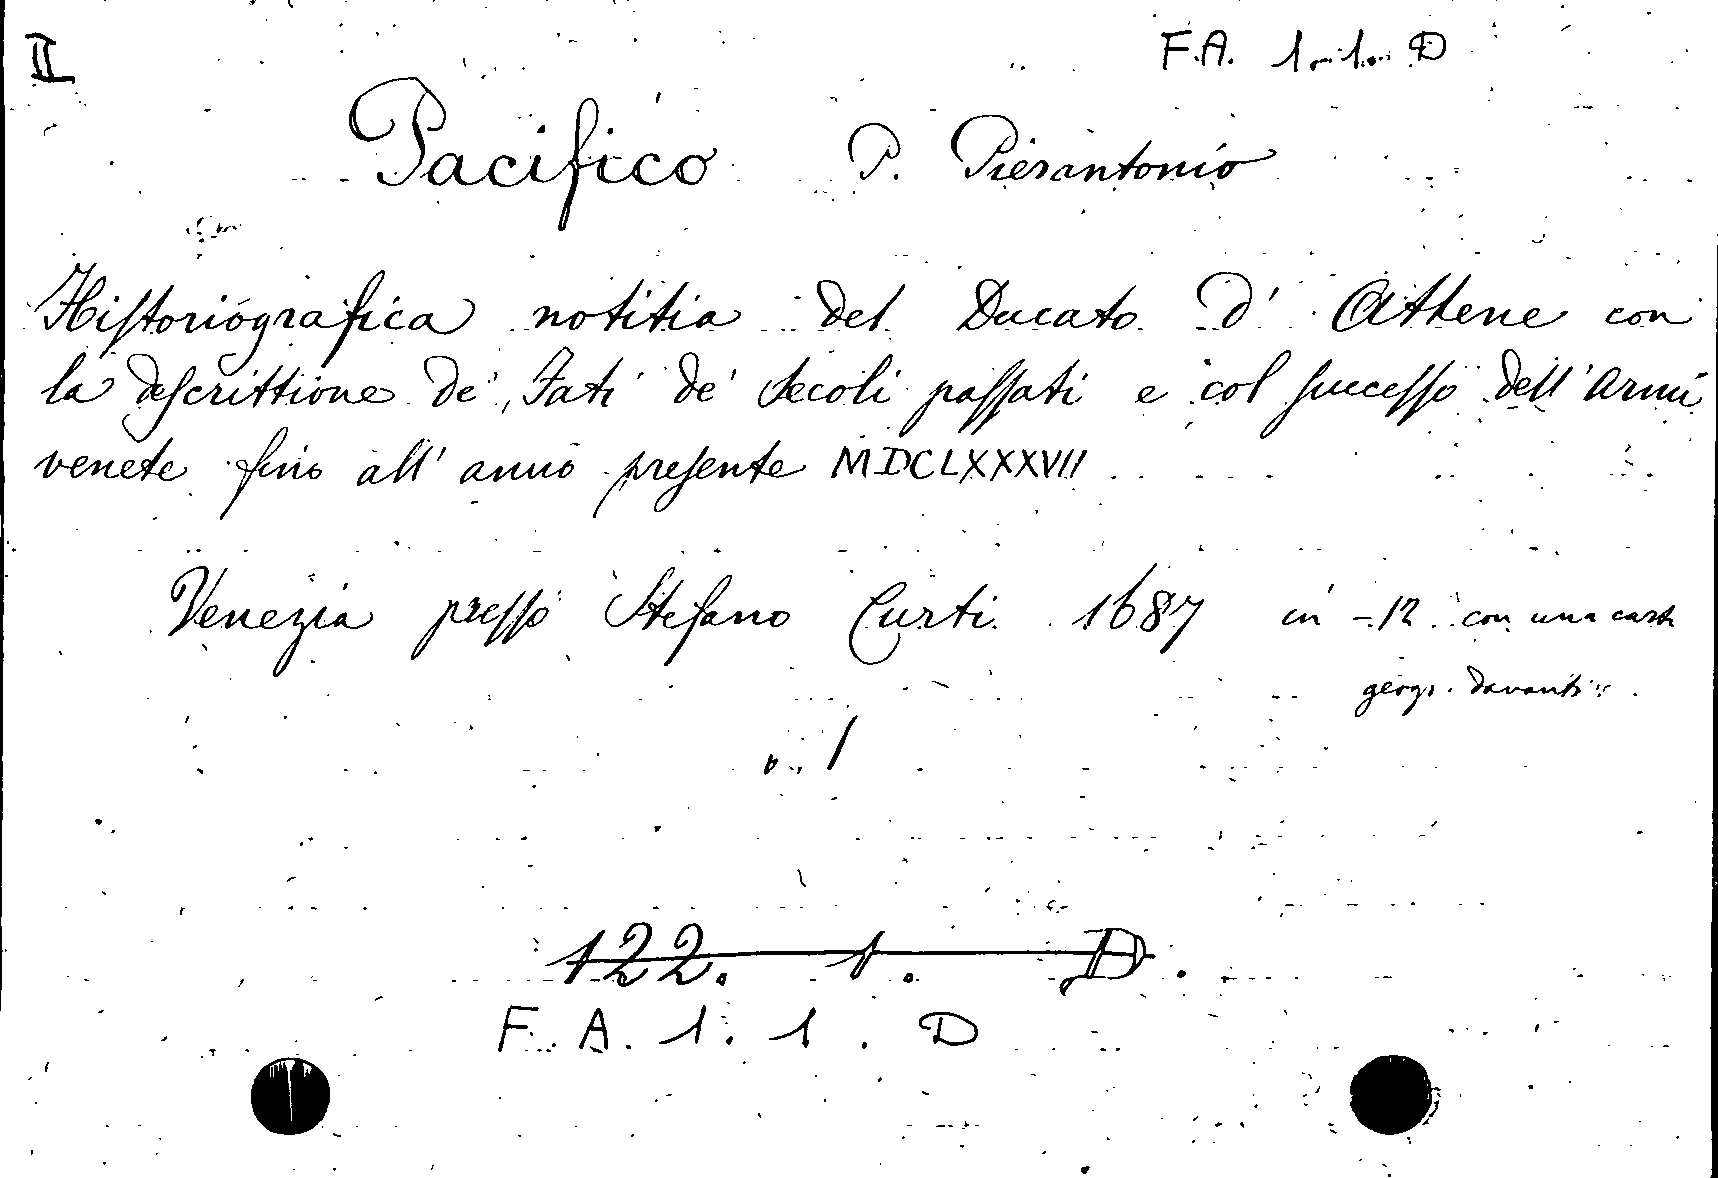 II
F.A. 1.1. D
Pacifico P. Pierantonio
Historiografica notitia del Ducato d' Athene con
la descrittione de' Fati de' Secoli passati e col successo dell' armi
venete fino all' anno presente MDCLXXXVII
Venezia presso Stefano Curti 1687 in -12 con una carta
geogr. davanti
v. 1
122. 1. D.
F. A. 1. 1. D